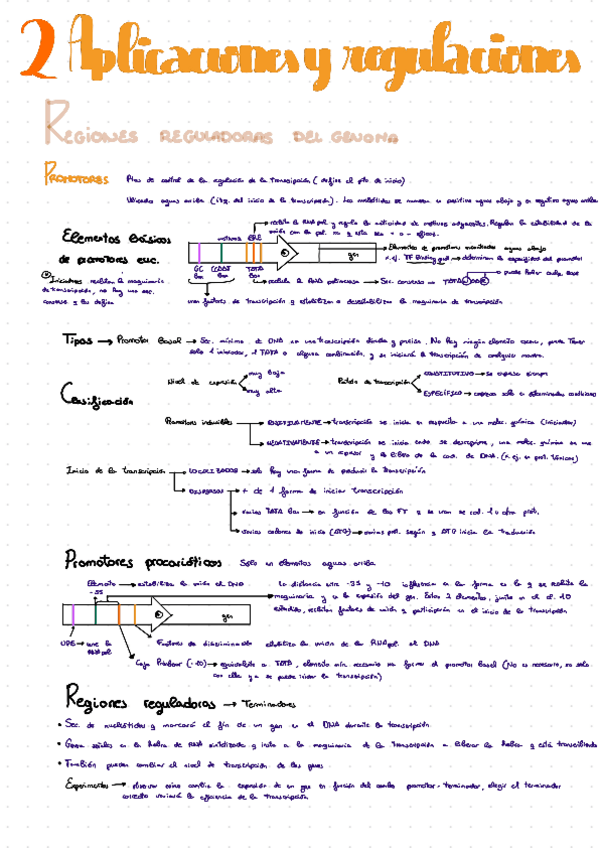 2 Aplicaciones y regulaciones
REGIONES REGULADORAS DEL GENOMA
PROMOTORES Ptos de control de la regulación de la transcripción (define el pto de inicio)
Ubicados aguas arriba (izq. del inicio de la transcripción). Los nucleótidos se numeran en positivo aguas abajo y en negativo aguas arriba
recluta la RNA pol y regula la actividad de motivos adyacentes. Regulan la estabilidad de la
unión con la pol.
Elementos básicos
de promotores euc.
motivos BRE
gen
Elementos de promotores aguas abajo
determinan la especificidad del promotor
GC Box CCAAT Box TATA Box
recluta la RNA polimerasa → Sec. consenso → TATA
puede haber cualq. base
Iniciadores reclutan la maquinaria
de transcripción, no hay una sec.
consenso q los defina
unen factores de transcripción y estabilizan o desestabilizan la maquinaria de transcripción
Tipos → Promotor Basal → Sec. mínima de DNA en una transcripción directa y precisa. No hay ningún elemento común, puede tener
solo el iniciador, el TATA o alguna combinación, y se iniciará la transcripción de cualquier manera.
Clasificación
Nivel de expresión muy baja
muy alta
Patrón de transcripción CONSTITUTIVO → se expresa siempre
ESPECÍFICO → expresan solo en determinadas condiciones
Promotores inducibles
POSITIVAMENTE → transcripción se inicia en respuesta a una molec. química (iniciador)
NEGATIVAMENTE → transcripción se inicia cuando se desreprime, una molec. química se une
a un represor y se libera de la cad. de DNA. (x ej. en prot. tóxicas)
Inicio de la transcripción
LOCALIZADOS → solo hay una forma de producir la transcripción
DISPERSOS → + de 1 forma de iniciar transcripción
varias TATA Box → en función de los FT q se unan se cod. 1 u otra prot.
varios codones de inicio (ATG) → varias prot. según q ATG inicia la traducción
Promotores procarióticos Solo en elementos aguas arriba
Elemento -35 → estabiliza la unión al DNA
La distancia entre -35 y -10 influencia en la forma en la q se recluta la
maquinaria y en la expresión del gen. Estos 2 elementos, junto en el el -10
extendido, reclutan factores de unión q participarán en el inicio de la transcripción
gen
UPE → une la RNA pol
Factores de discriminación estabiliza la unión de la RNA pol. al DNA
Caja Pribnow (-10) → equivalente a TATA, elemento mín. necesario para formar el promotor basal (No es necesario, no solo
con ella ya se puede iniciar la transcripción)
Regiones reguladoras → Terminadores
• Sec. de nucleótidos q marcará el fin de un gen en el DNA durante la transcripción.
• Genera señales en la hebra de RNA sintetizada q insta a la maquinaria de la transcripción a liberar la hebra q está transcribiendo
• También pueden cambiar el nivel de transcripción de los genes.
Experimentos → observar cómo cambia la expresión de un gen en función del cambio promotor-terminador, elegir el terminador
correcto variará la eficiencia de la transcripción.